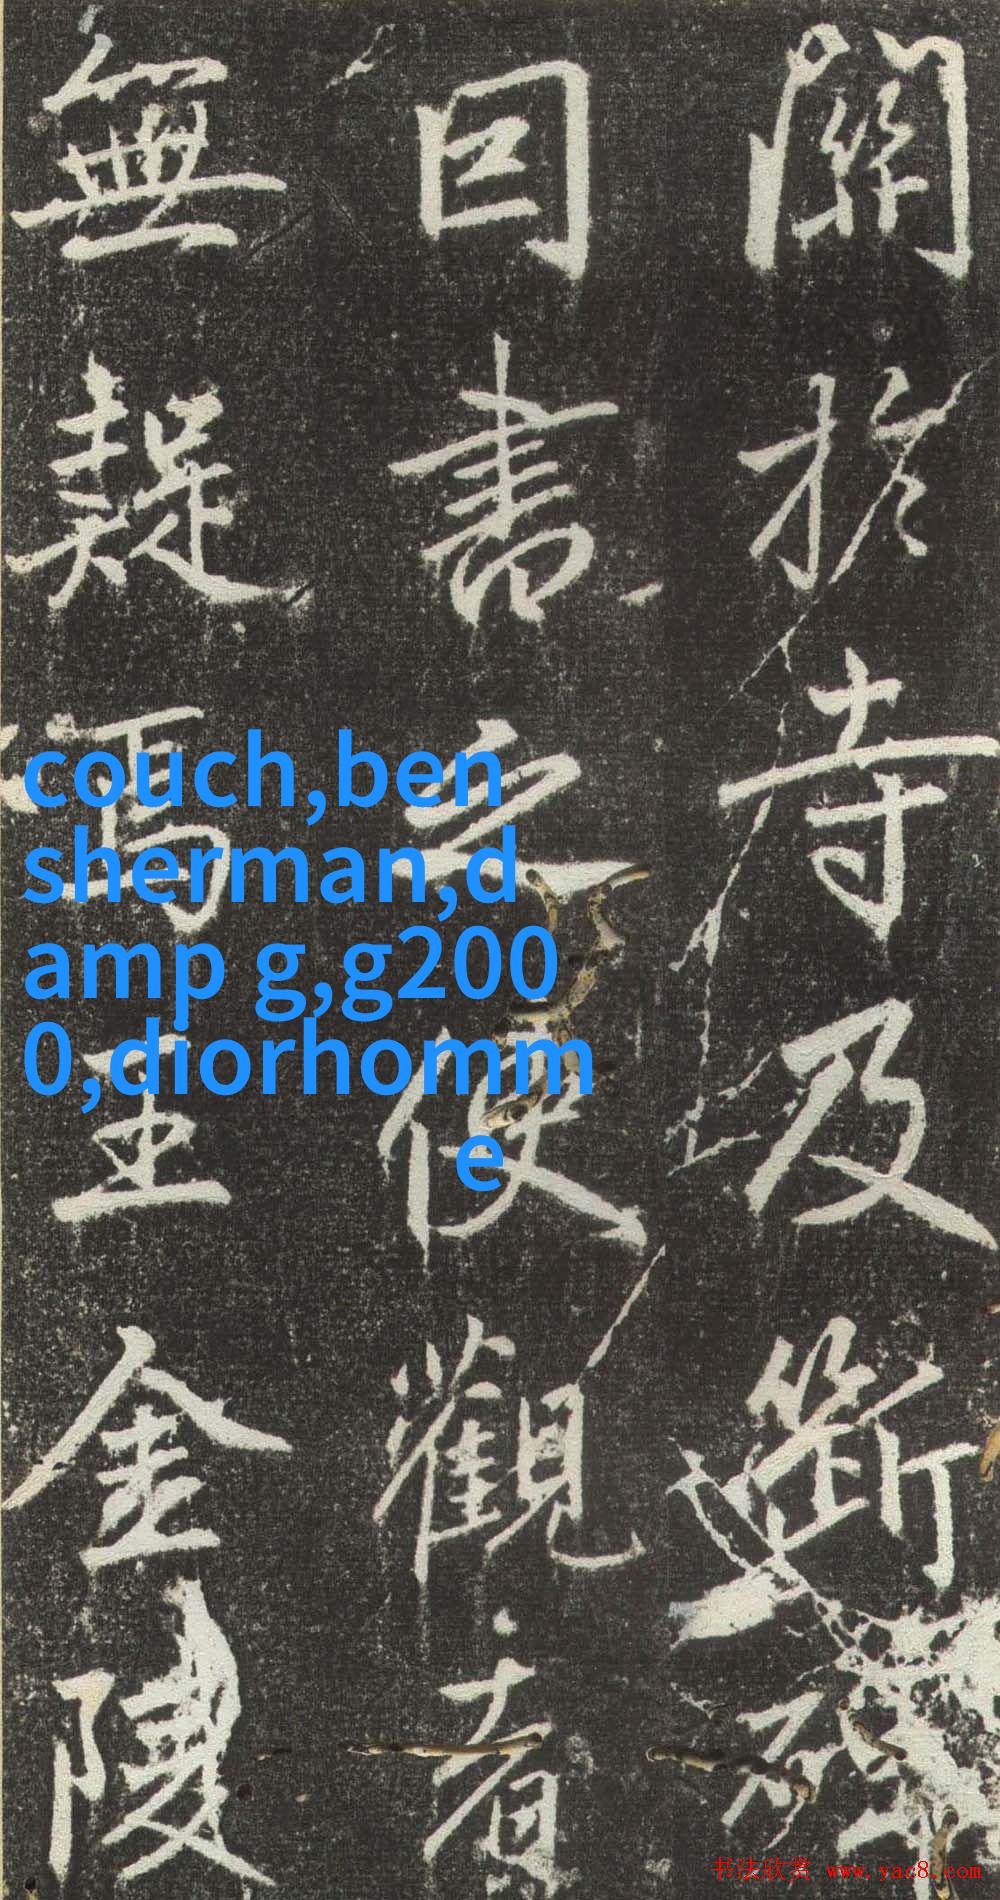 關於寺及斷
囙書之使觀者
無疑焉王金陵
couch,ben
sherman,d
amp g,g200
0,diorhomm
e
书法欣赏 www.yac8.com